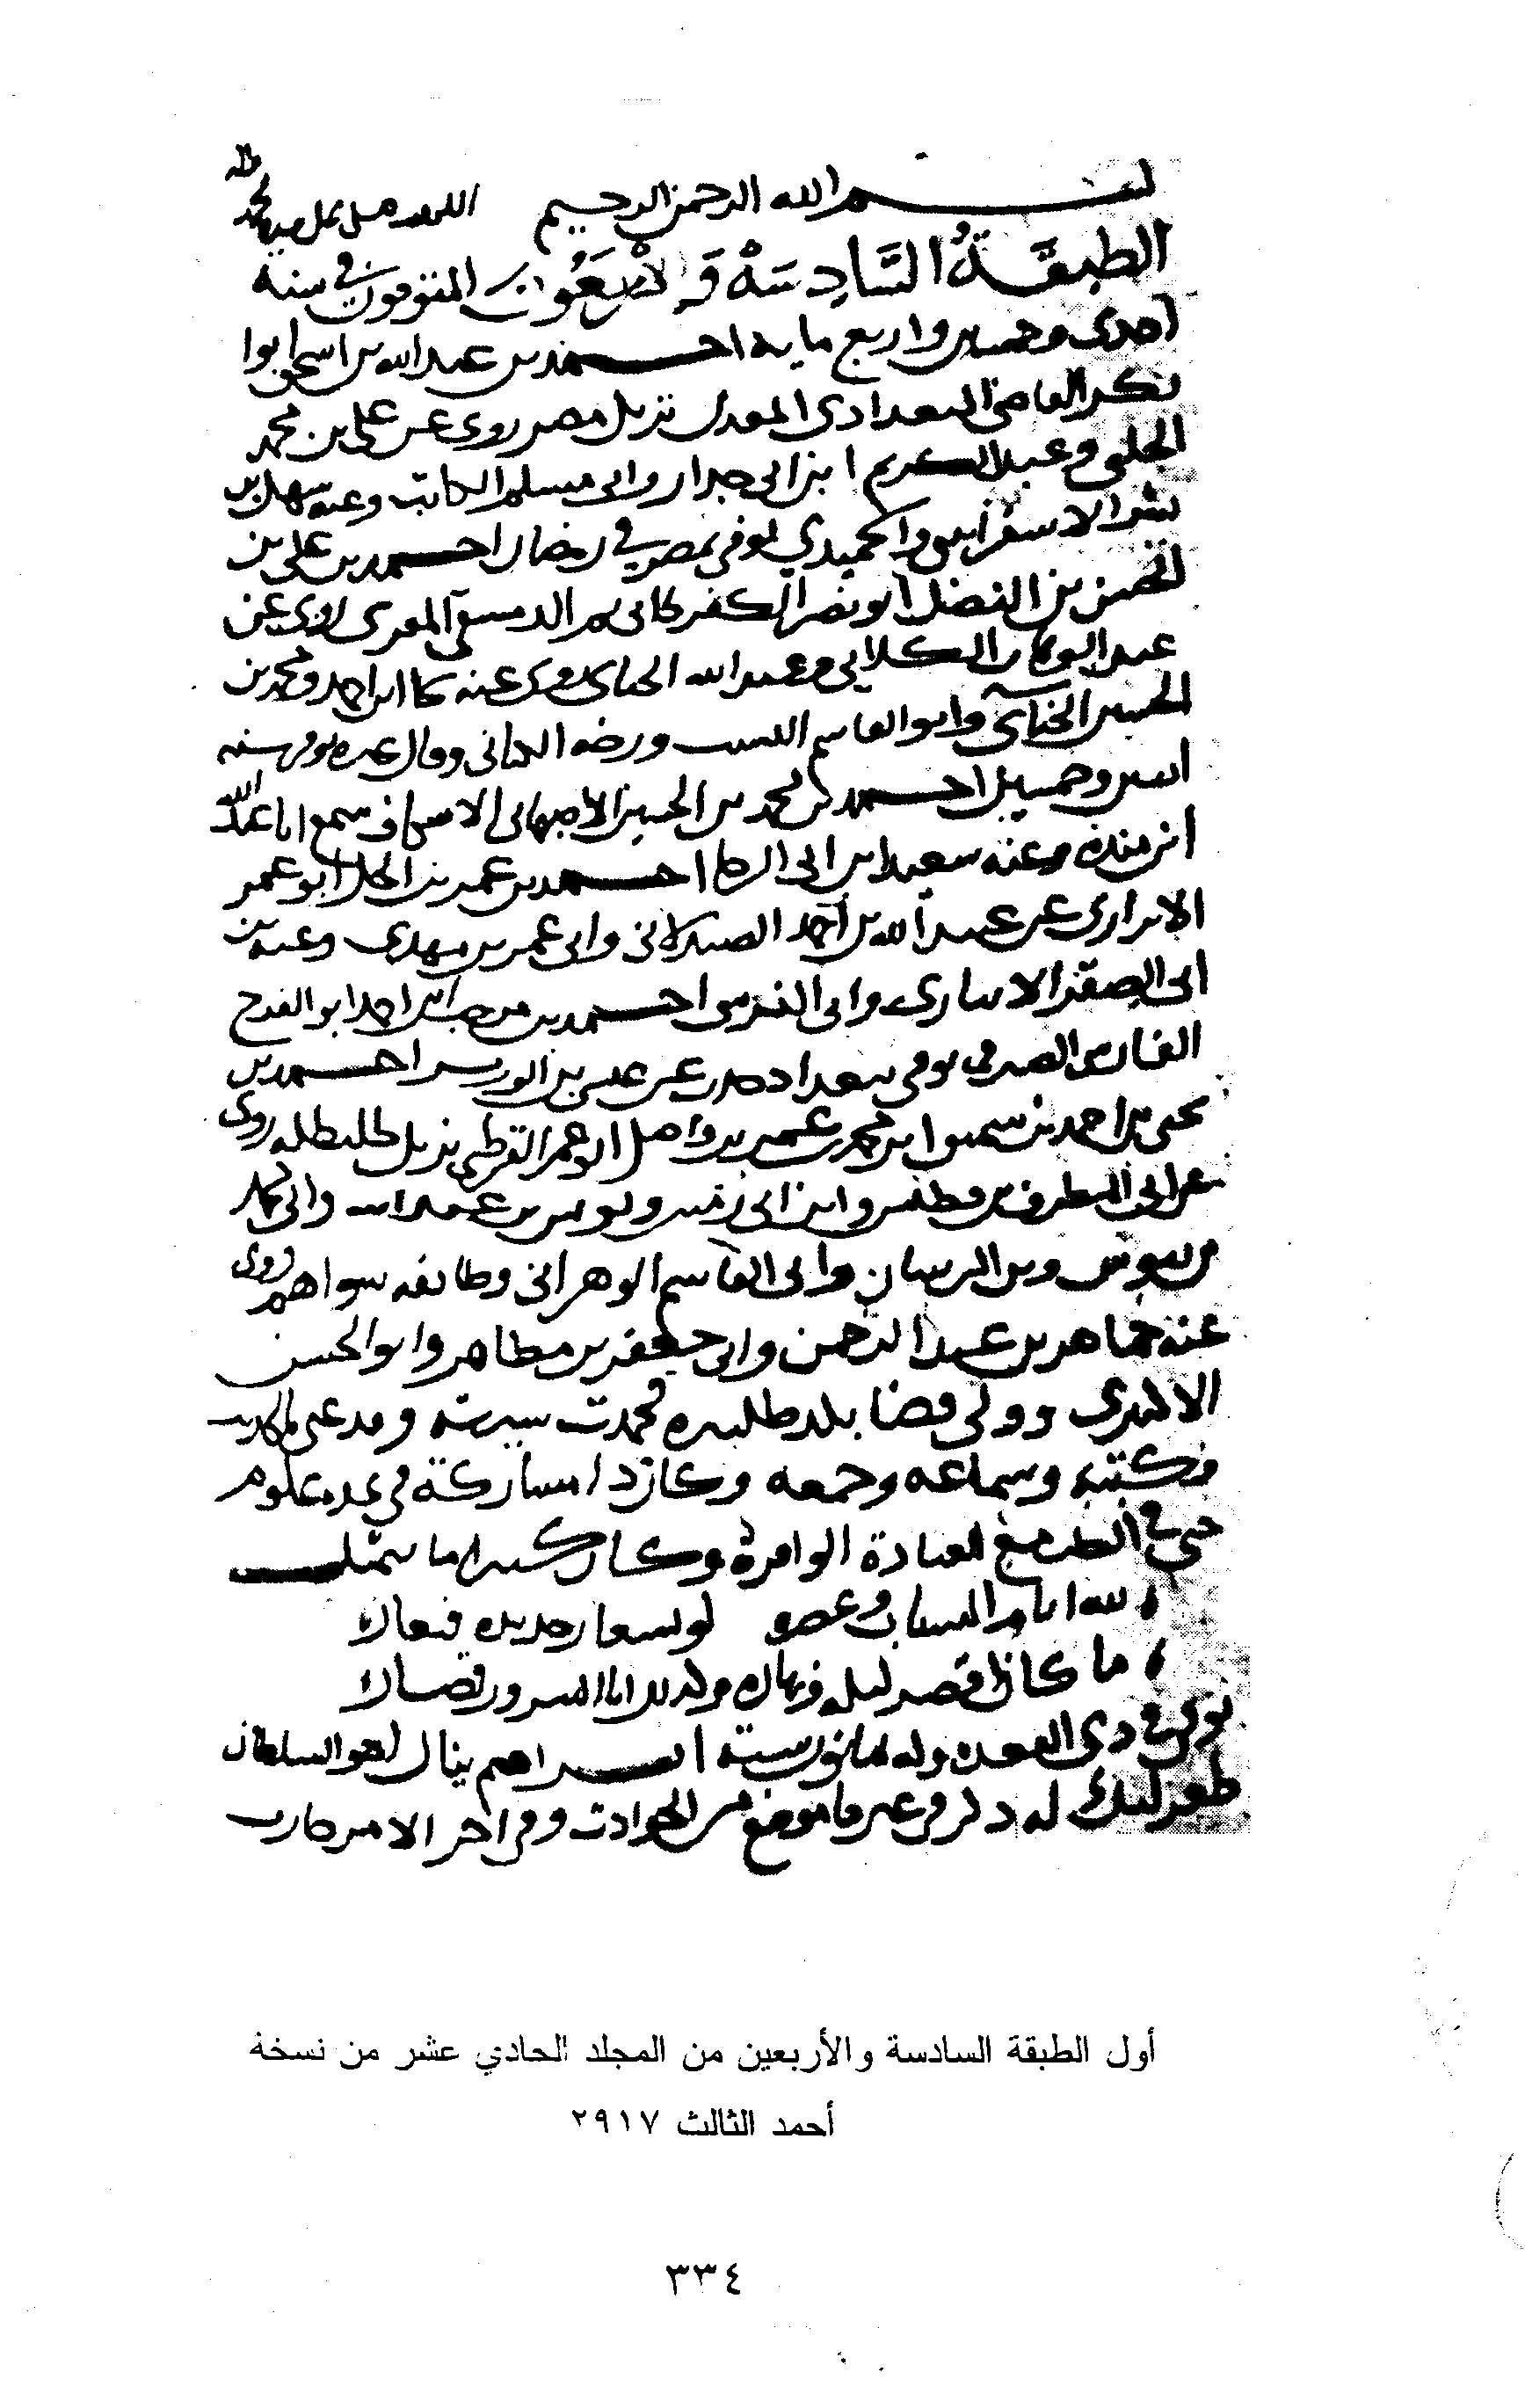 بسم الله الرحمن الرحيم اللهم صل على محمد
الطبقة السادسة والاربعون المتوفون في سنة
احدى وخمسين واربع مايه احمد بن عبد الله بن اسحق ابوا
بكر القاضي البغدادي المعدل نزيل مصر روى عن علي بن محمد
الحلبي وعبد الكريم ابن ابي جدار وابي مسلم الكاتب وعنه سهل بن
بشر الاسفرايني والحميدي توفي بمصر في رمضان احمد بن علي بن
الحسن بن الفضل ابو نصر الكفرطابي ثم الدمشقي المقرى روى عن
عبد الوهاب الكلابي وعبد الله روى عنه
الحسين الحنآى وابو القاسم النسيب ورخه الكتاني وقال غيره توفي سنه
اثنين وخمسين احمد بن محمد بن الحسين الاصبهاني الاسكاف سمع ابا عبد الله
ابن منده وعنه سعيد ابن ابي الرجا احمد بن عمر بن الخل ابو عمر
عن عبيد الله بن احمد الصيدلاني وابي عمر بن مهدي وعنه بن
ابي الصقر الانباري وابي النرسي احمد بن ابو الفرج
الفارسي الصيرفي توفي ببغداد حدث عن عيسى بن الوزير احمد بن
يحيى بن احمد بن سميق ابن محمد بن عمر بن واصل ابو عمر القرطبي نزيل طليطله روى
عن ابي المطرف بن فطيس وابن ابي زمنين ويونس بن عبد الله وابي محمد
بن بنوش وبن الرسان وابي القاسم الوهراني وطايفه سواهم روى
عنه جماهر بن عبد الرحمن وابي جعفر بن مطاهر وابو الحسن
الالبيري وولي قضا بلد طلبيره فحمدت سيرته وقد عني بالحديث
وكتبه وسماعه وجمعه وكان ذا مشاركة في عدة علوم
حتى في الطب مع العبادة الوافرة وكان كثيرا ما يتمثل
لله ايام الشباب وعصره لو يستعار جديده فيعارا
ما كان اقصر ليله ونهاره وكذلك ايام السرور قصارا
توفي في ذي القعده وله ثمانون سنة ابراهيم ينال اخو السلطان
طغرلبك له ذكر في غير ما موضع من الحوادث وفي اخر الامر حارب
أول الطبقة السادسة والأربعين من المجلد الحادي عشر من نسخة
أحمد الثالث ٢٩١٧
٣٣٤